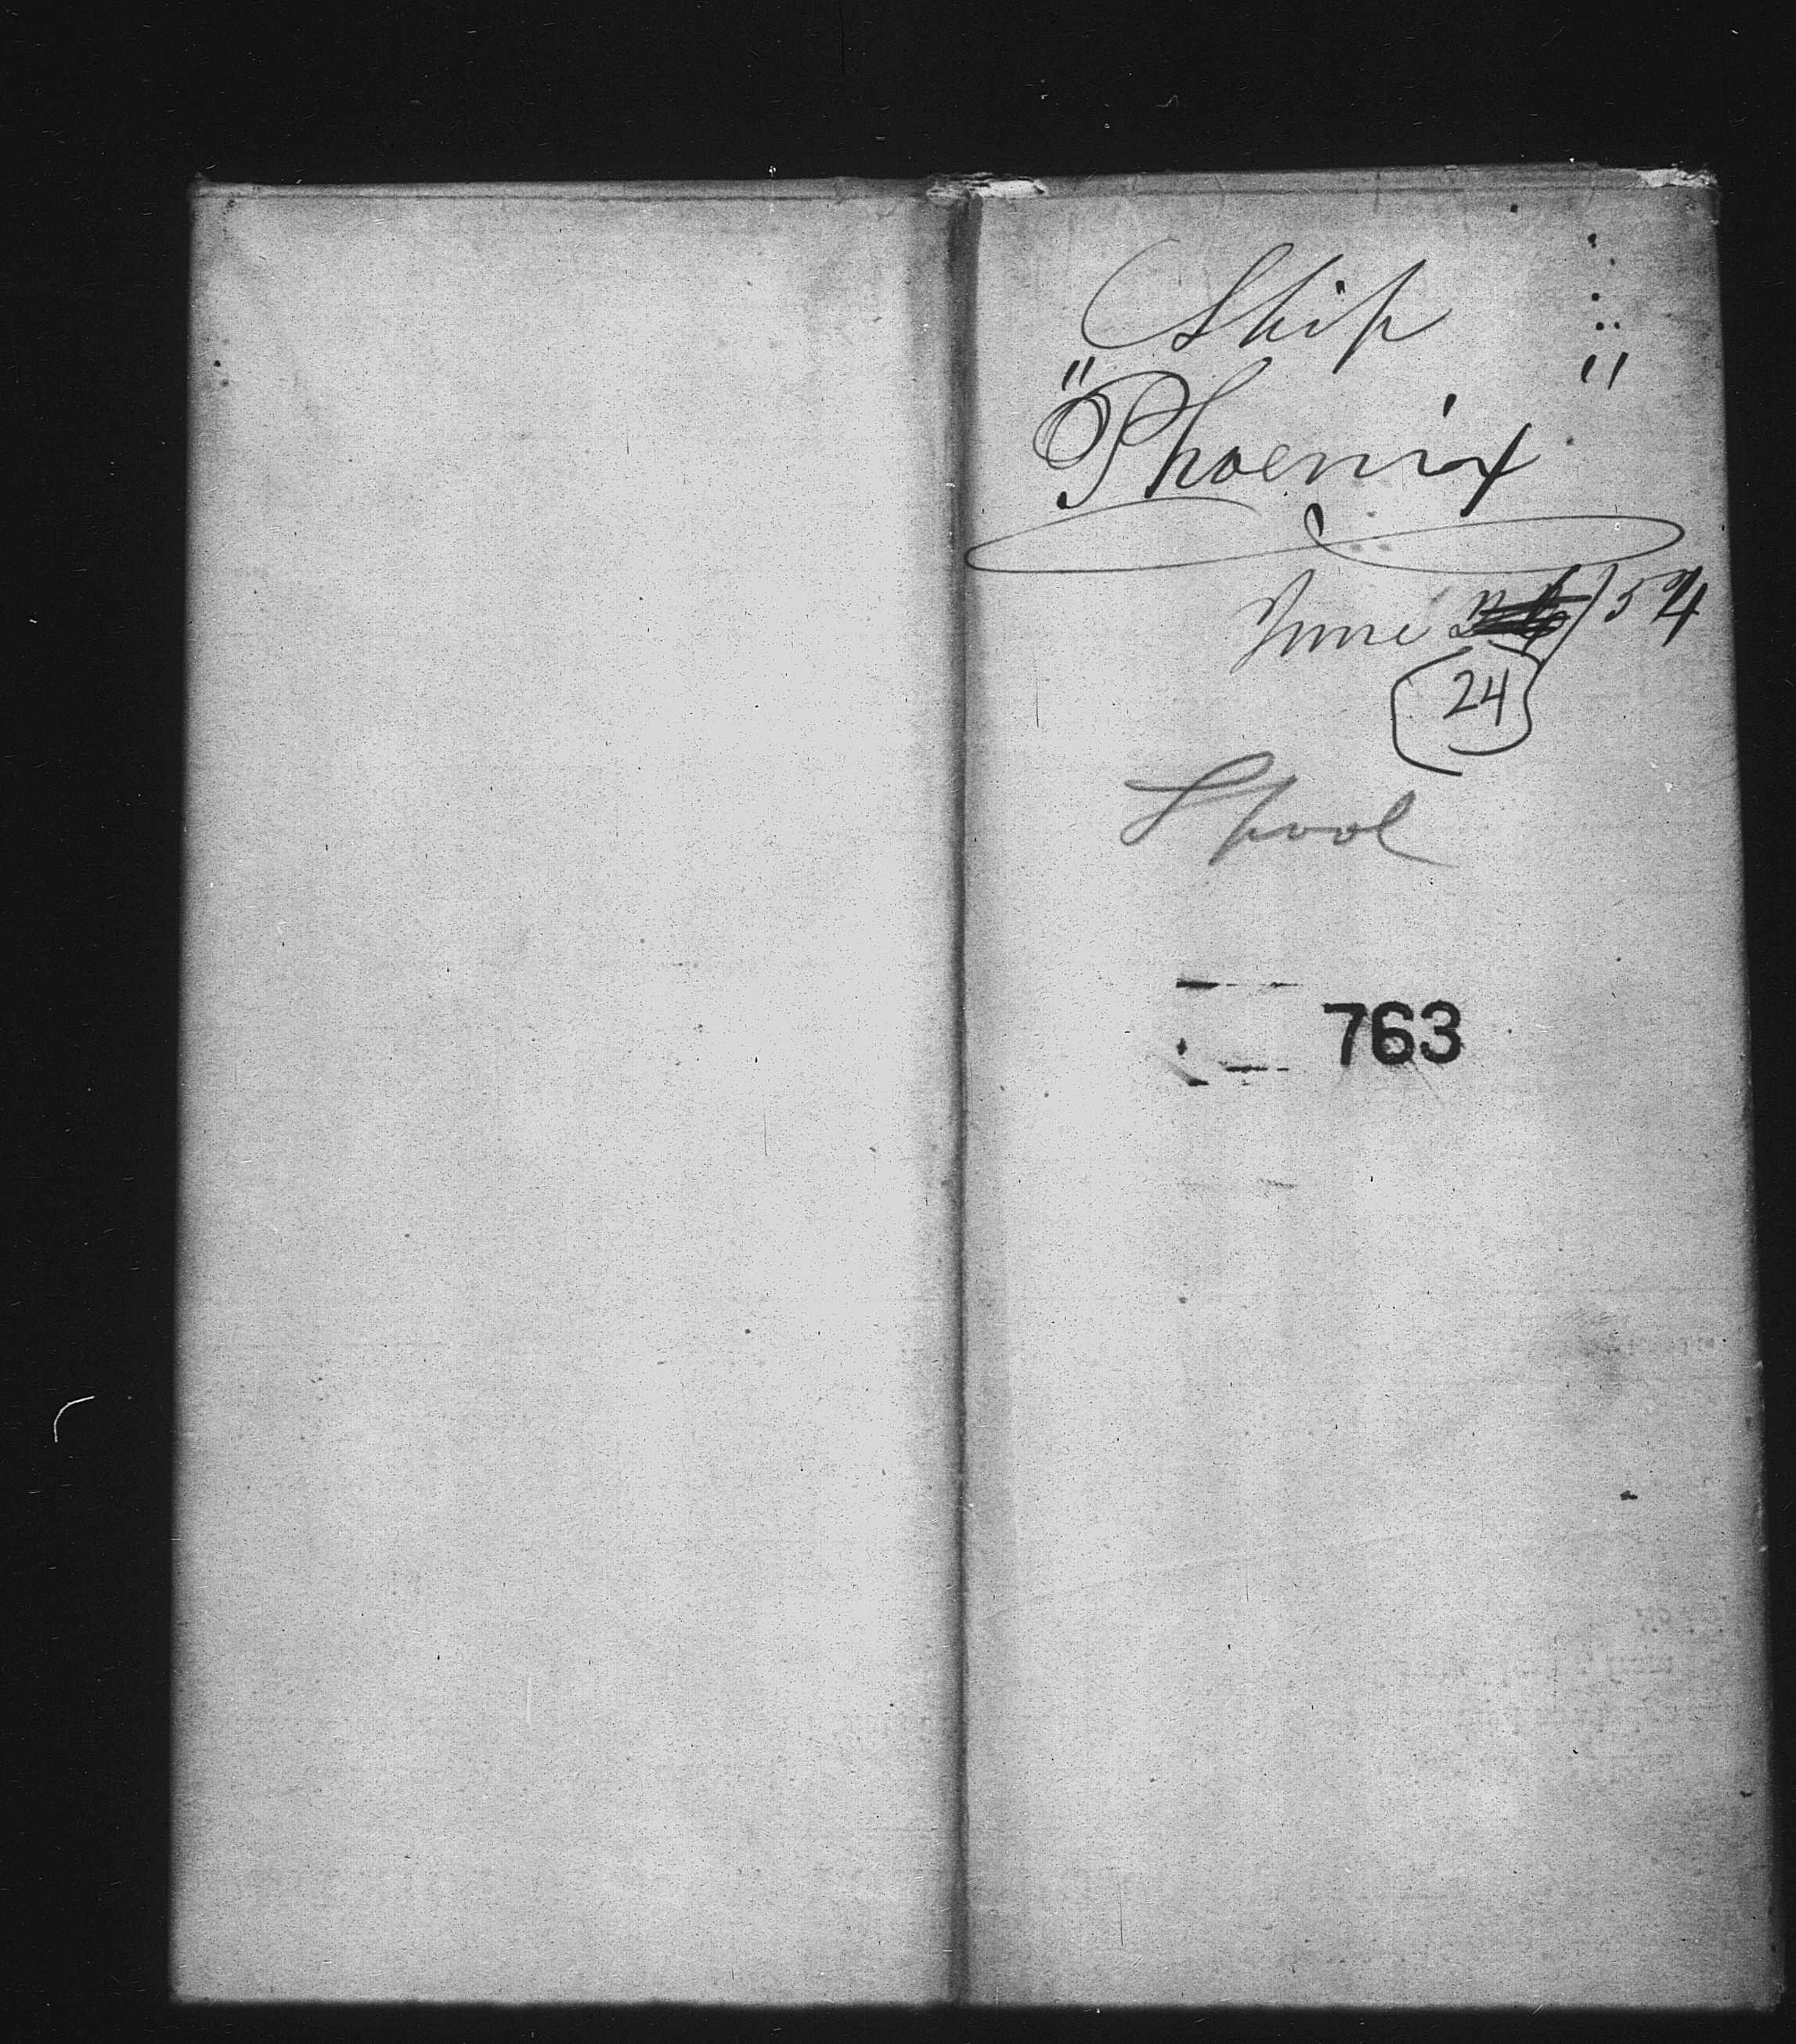 Ship
"Phoenix"
June /54
24
Lpool
763